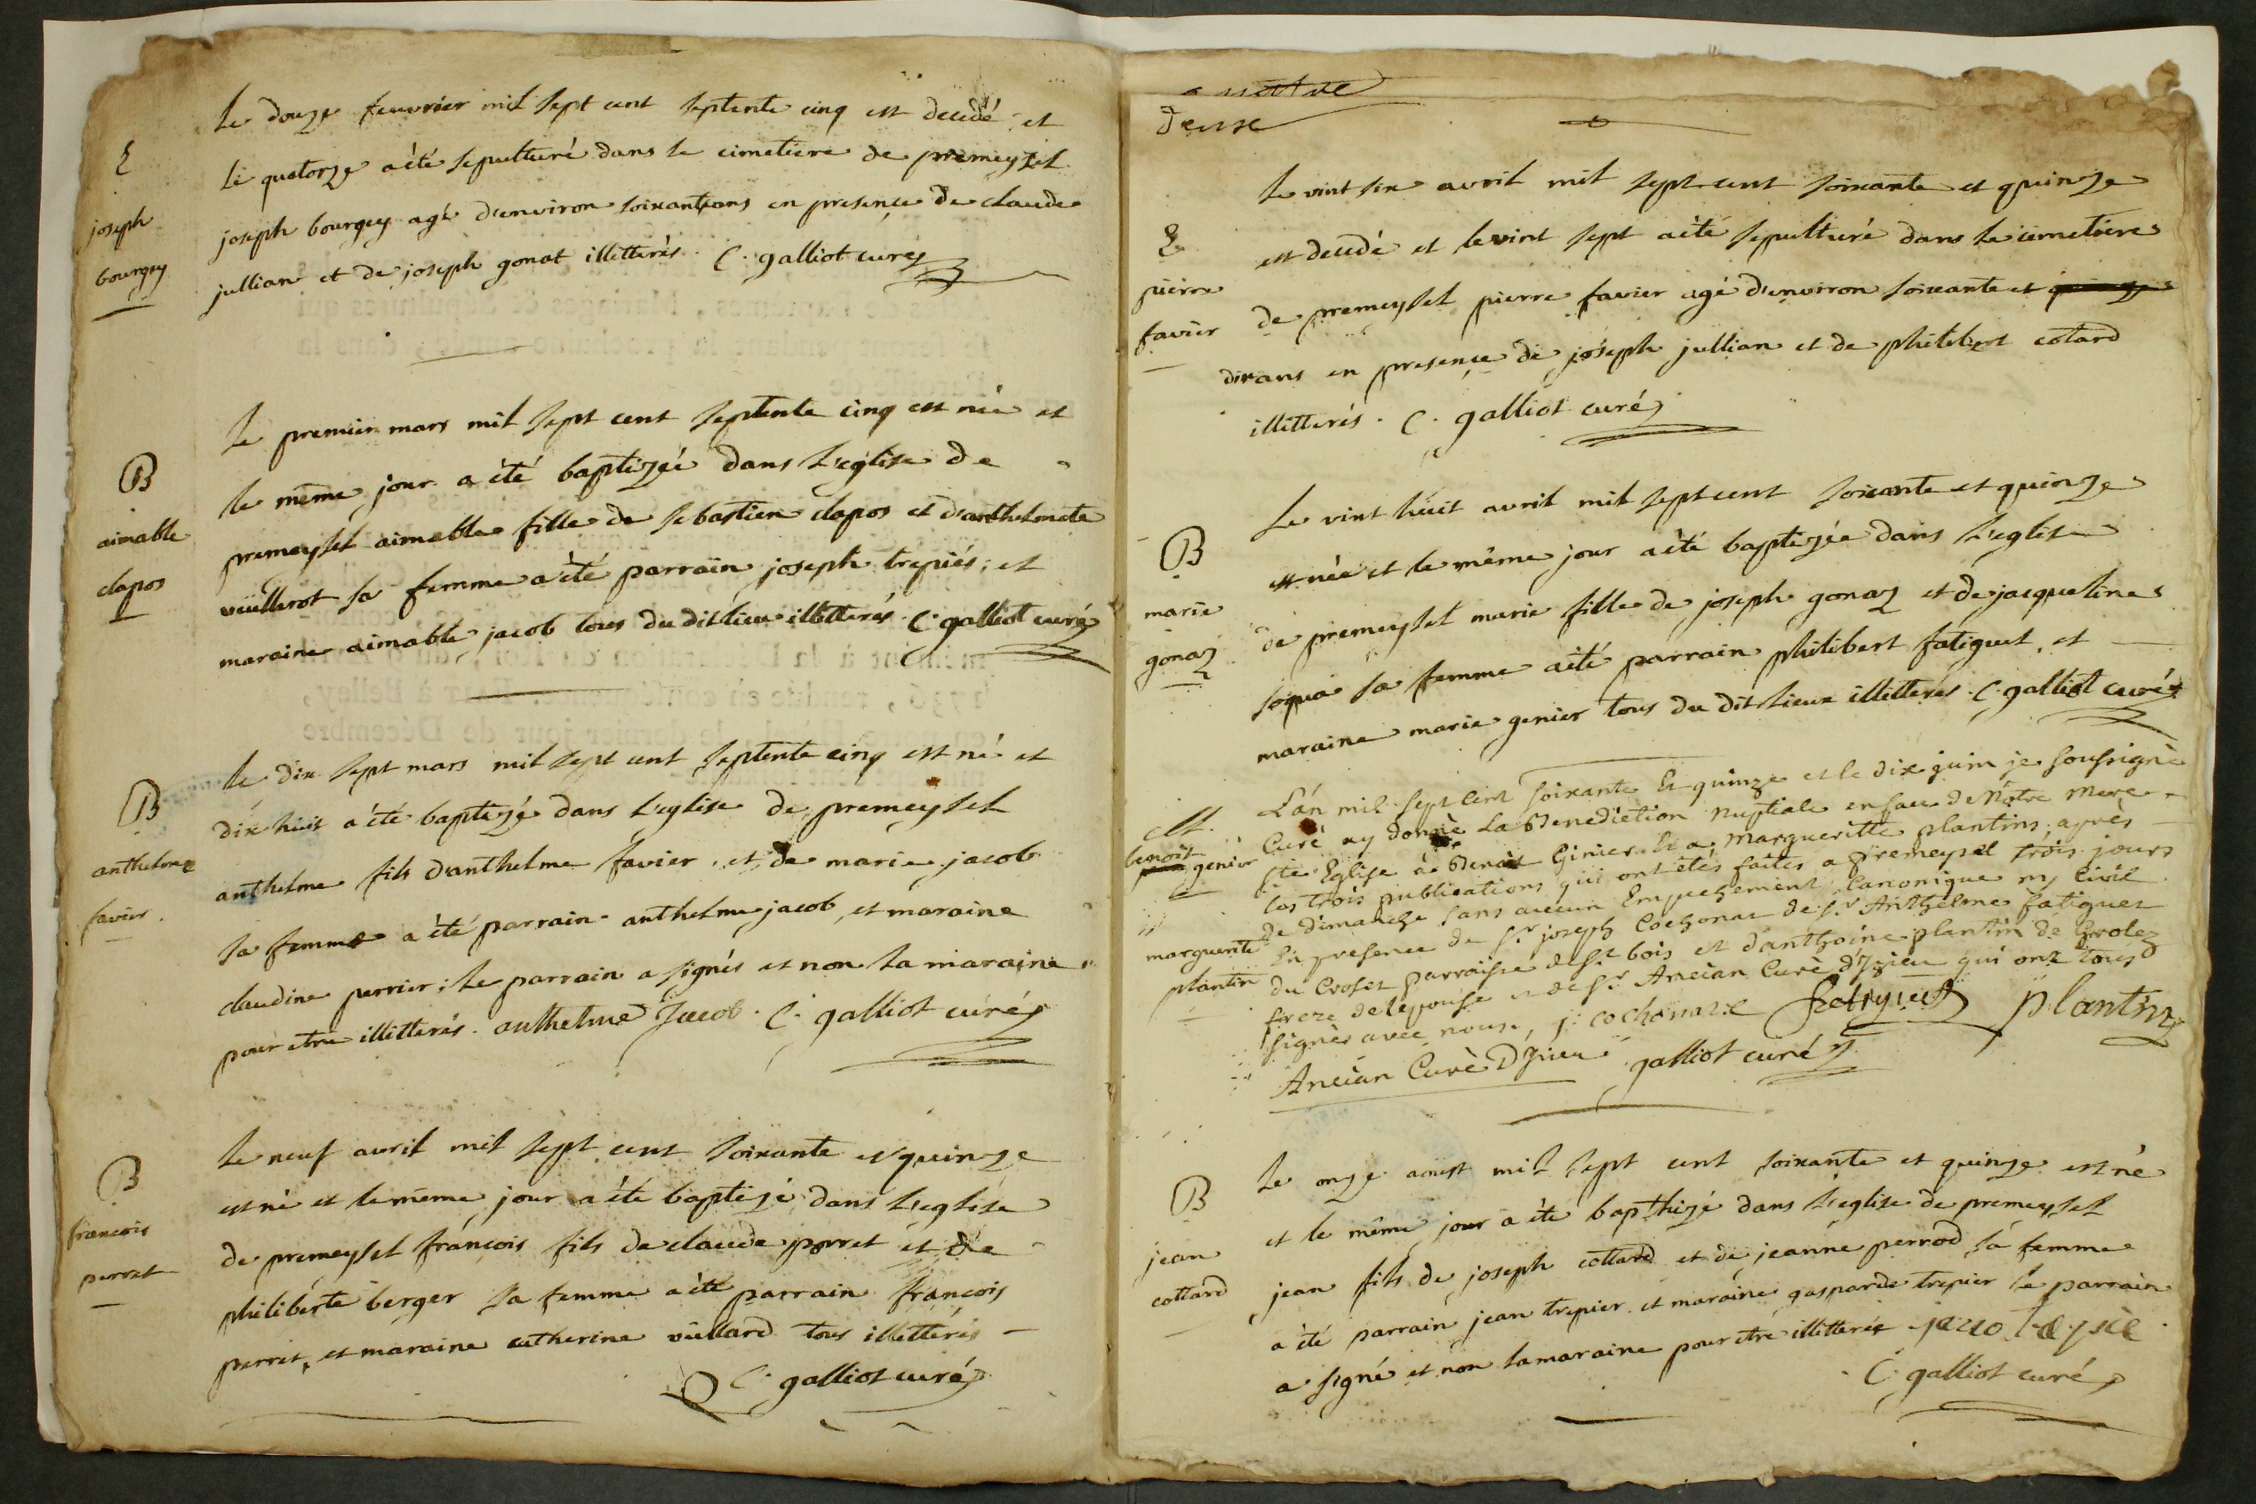 E
joseph
bourgey
Le douze feuvrier mil sept cent septente cinq est decedé et
le quatorze a èté sepulturé dans le cimetiere de premeysel
joseph bourgey agé d'environ soixanteans en presence de claude
jullian et de joseph gonat illitterés. C. galliot curé
B
aimable
clapos
Le premier mars mil sept cent septente cinq est née et
le même jour a èté baptizée dans l'eglise de
premeysel aimable fille de sebastien clapos et d'anthelmete
vüillerot sa femme a èté parrain joseph trepiés, et
maraine aimable jacob tous du dit lieu illitterés C. galliot curé
B
anthelme
favier
le dix sept mars mil sept cent septente cinq est né et
dix huit a èté baptizé dans l'eglise de premeysel
anthelme fils d'anthelme favier, et de marie jacob
sa femme a èté parrain anthelme jacob, et maraine
claudine perrier; le parrain a signés et non la maraine
pour etre illitterés. anthelme Jacob. C. galliot curé
B
francois
perret
Le neuf avril mil sept cent soixante et quinze
est né et le même jour a èté baptizé dans l'eglise
de premeysel françois fils de claude perret et de
philiberte berger sa femme a èté parrain françois
perret, et maraine catherine vüillard tous illitterés
C. galliot curé
Deuxe
E
pierre
favier
Le vint six avril mil sept cent soixante et quinze
est decedé et le vint sept a èté sepulturé dans le cimetiere
de premeysel pierre favier agé d'environ soixante et quinze
dixans en presence de joseph jullian et de philibert cotard
illitterés. C. galliot curé
B
marie
gonaz
Le vint huit avril mil sept cent soixante et quinze
est née et le même jour a èté baptizée dans l'eglise
de premeysel marie fille de joseph gonaz et de jacqueline
soqua sa femme a èté parrain philibert fatiguet, et
maraine marie genier tous du dit lieux illitterés C. galliot curé
M.
benoit
genier
marguerite
plantin
L'an mil sept cent soixante et quinze et le dix juin je soussignè
Curé ay donnè La Benediction nuptiale en face de Nôtre mere
ste Eglise à Benoit Ginier et a Margueritte plantins, après
les trois publications qui ont étés faites a premeysel trois jours
de dimanche sans aucun Empechement Canonique ny Civil
En presence de sr joseph Cochonat de sr Anthelme fatiguet
du Croset parroisse de st bois et d'anthoine plantin de Brolez
frere de lepouse et de sr Ancian Curè d'Izieu qui ont tous
signès avec nous, j. cochonat Fatiguet plantin
Ancian Curè D'Izieu galliot curé
B
jean
cottard
Le onze aoust mil sept cent soixante et quinze est né
et le même jour a èté bapthizé dans l'eglise de premeysel
jean fils de joseph cottard et de jeanne perrod sa femme
a èté parrain jean trepier et maraine gasparde trepier le parrain
a signé et non la maraine pour être illitterés
C. galliot curé